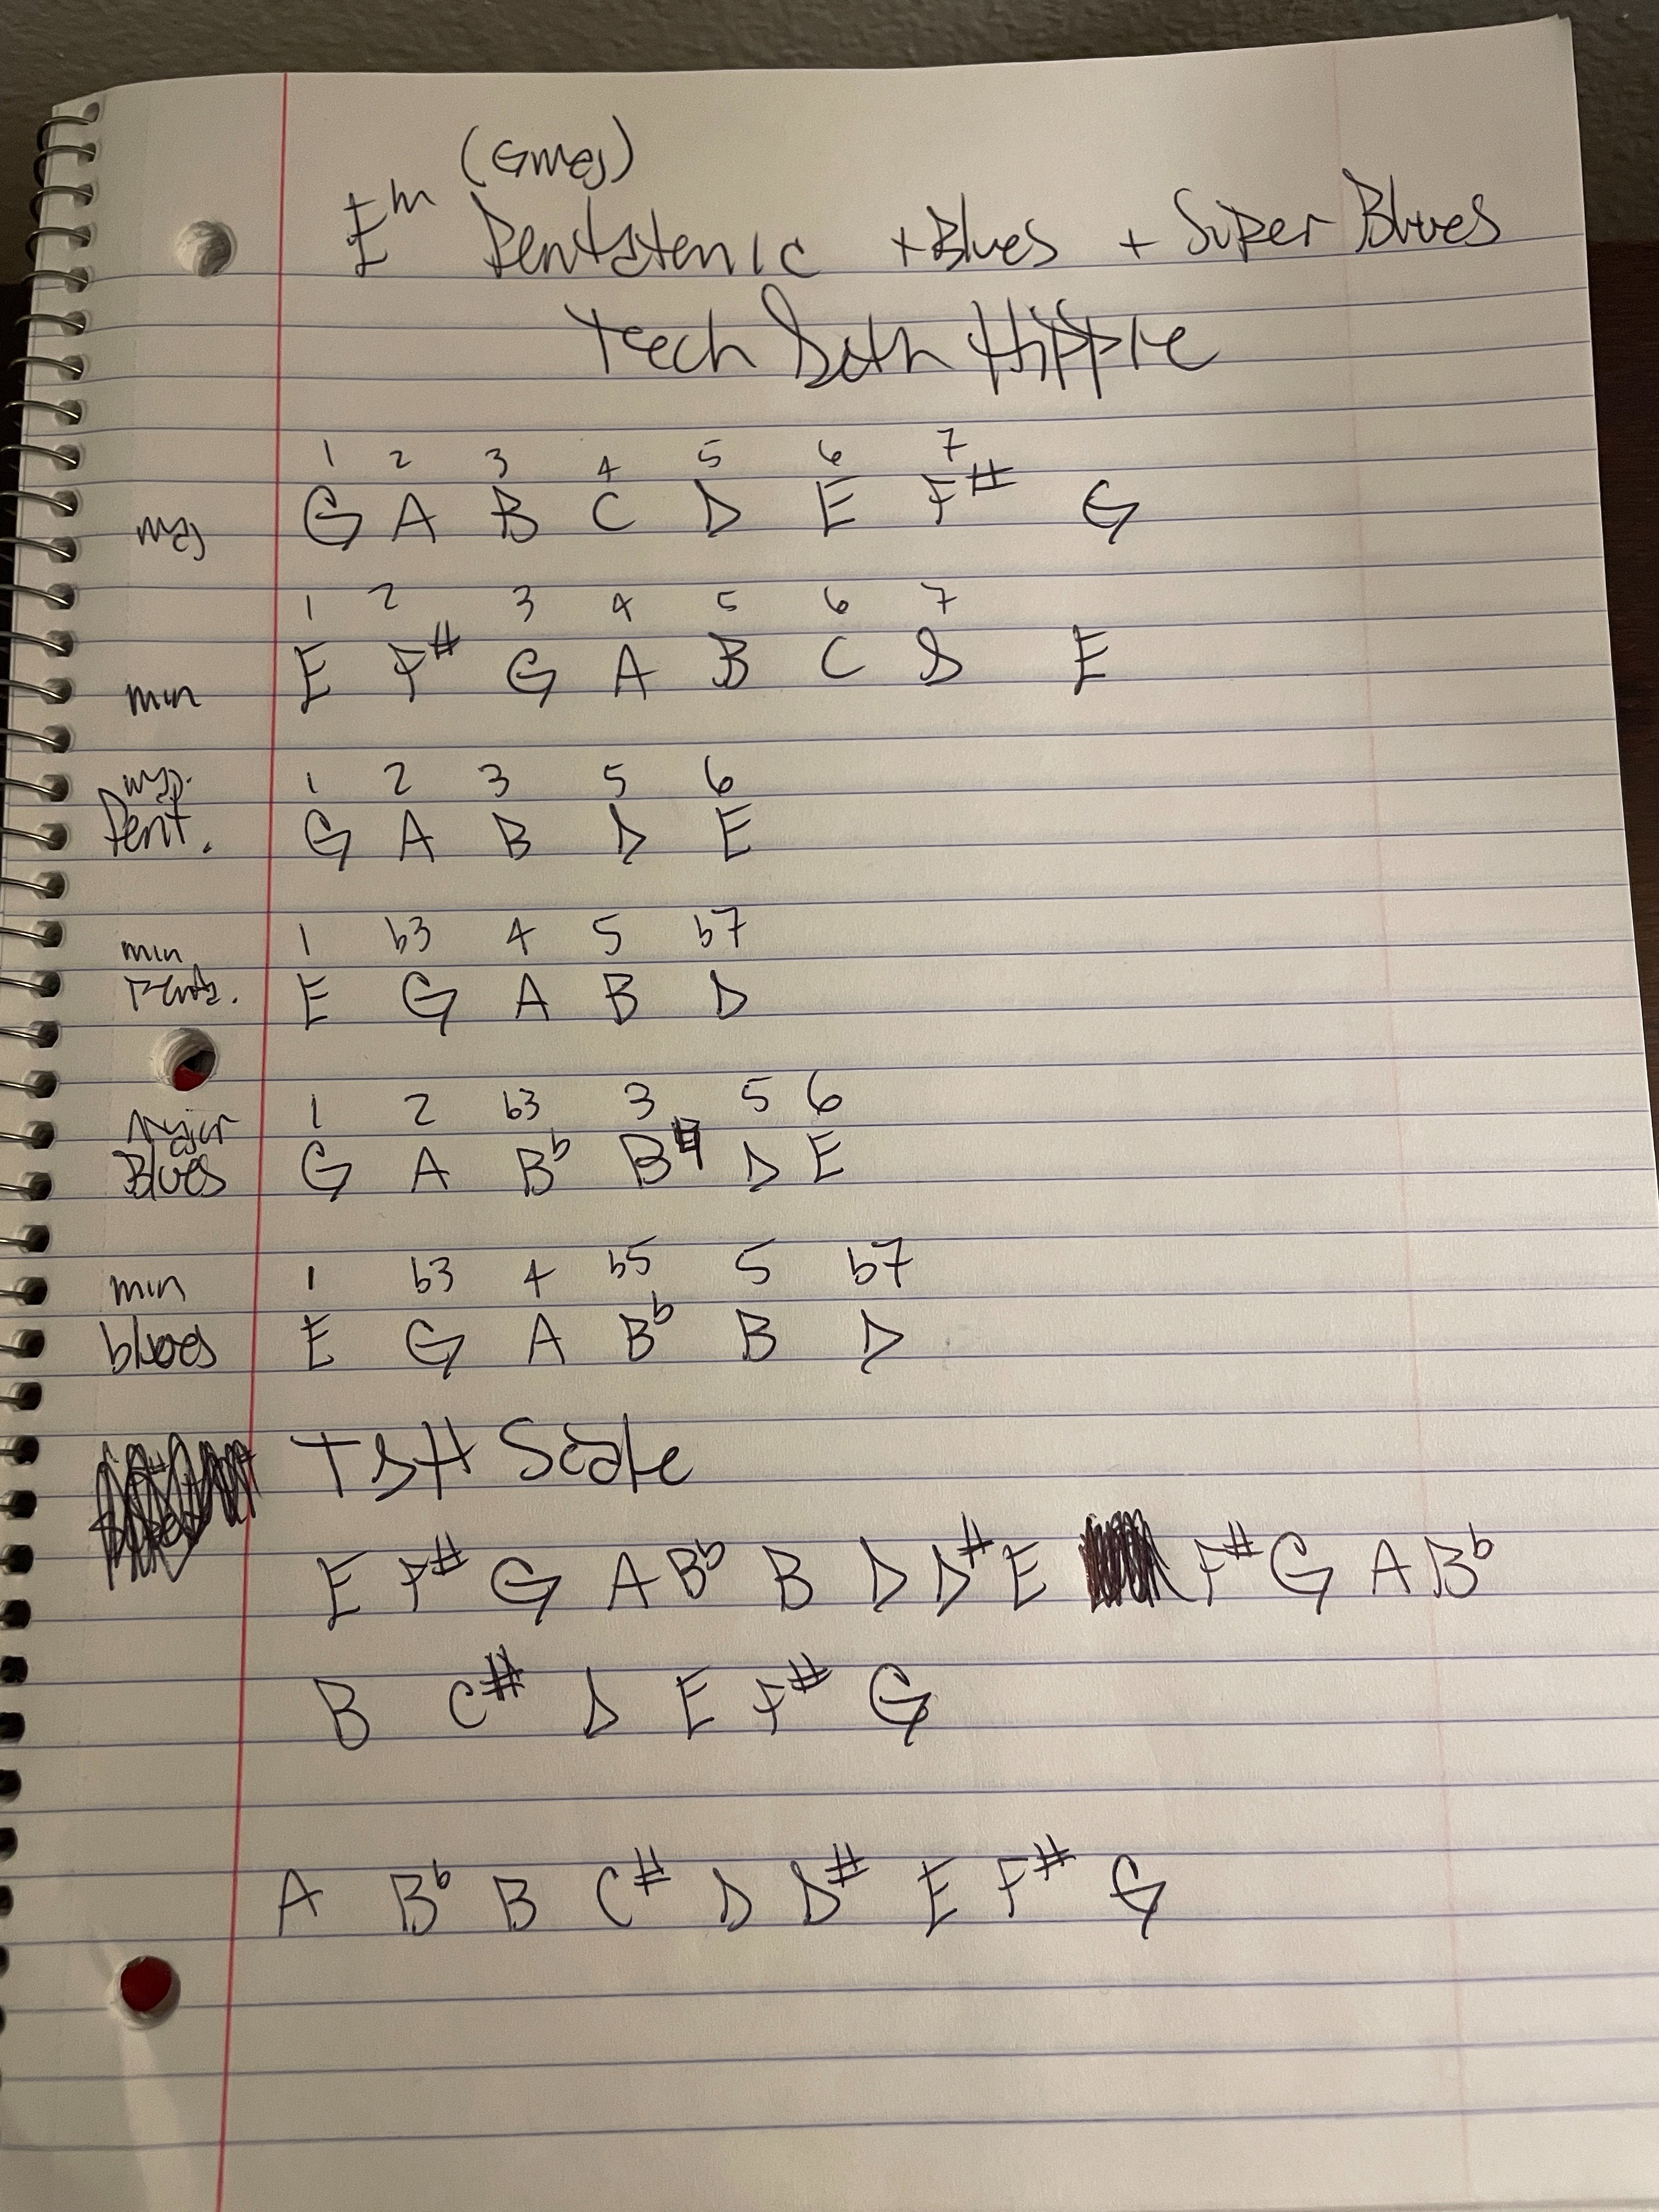 (Gmaj)
Em Pentatonic + Blues + Super Blues
Tech Hippie
1 2 3 4 5 6 7
maj G A B C D E F# G
1 2 3 4 5 6 7
min E F# G A B C D E
maj. 1 2 3 5 6
Pent. G A B D E
min 1 b3 4 5 b7
Pent. E G A B D
Major 1 2 b3 3 5 6
Blues G A Bb B♮ D E
min 1 b3 4 b5 5 b7
blues E G A Bb B D
TSH Scale
E F# G A Bb B D D# E F# G A Bb
B C# D E F# G
A Bb B C# D D# E F# G